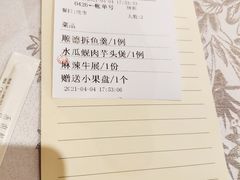 0426一帐单号
人数:2
菜品
顺德拆鱼羹/1例
水瓜蚬肉芋头煲/1例
麻辣牛展/1份
赠送小果盘/1个
2021-04-04 17:53:06